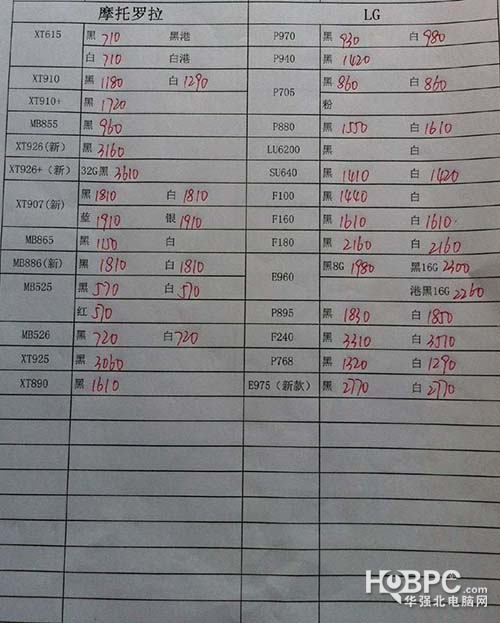 摩托罗拉 LG
XT615 黑 710 黑港 P970 黑 930 白 980
白 710 白港 P940 黑 1420
XT910 黑 1180 白 1290 P705 黑 860 白 860
XT910+ 黑 1720 粉
MB855 黑 960 P880 黑 1550 白 1610
XT926(新) 黑 3160 LU6200 黑 白
XT926+（新） 32G黑 3610 SU640 黑 1410 白 1420
XT907(新) 黑 1810 白 1810 F100 黑 1440 白
蓝 1910 银 1910 F160 黑 1610 白 1610
MB865 黑 1150 白 F180 黑 2160 白 2160
MB886(新) 黑 1810 白 1810 E960 黑8G 1980 黑16G 2300
MB525 黑 570 白 570 港黑16G 2260
红 570 P895 黑 1830 白 1850
MB526 黑 720 白 720 F240 黑 3310 白 3510
XT925 黑 3060 P768 黑 1320 白 1290
XT890 黑 1610 E975（新款） 黑 2770 白 2770
HQBPC.com
华强北电脑网